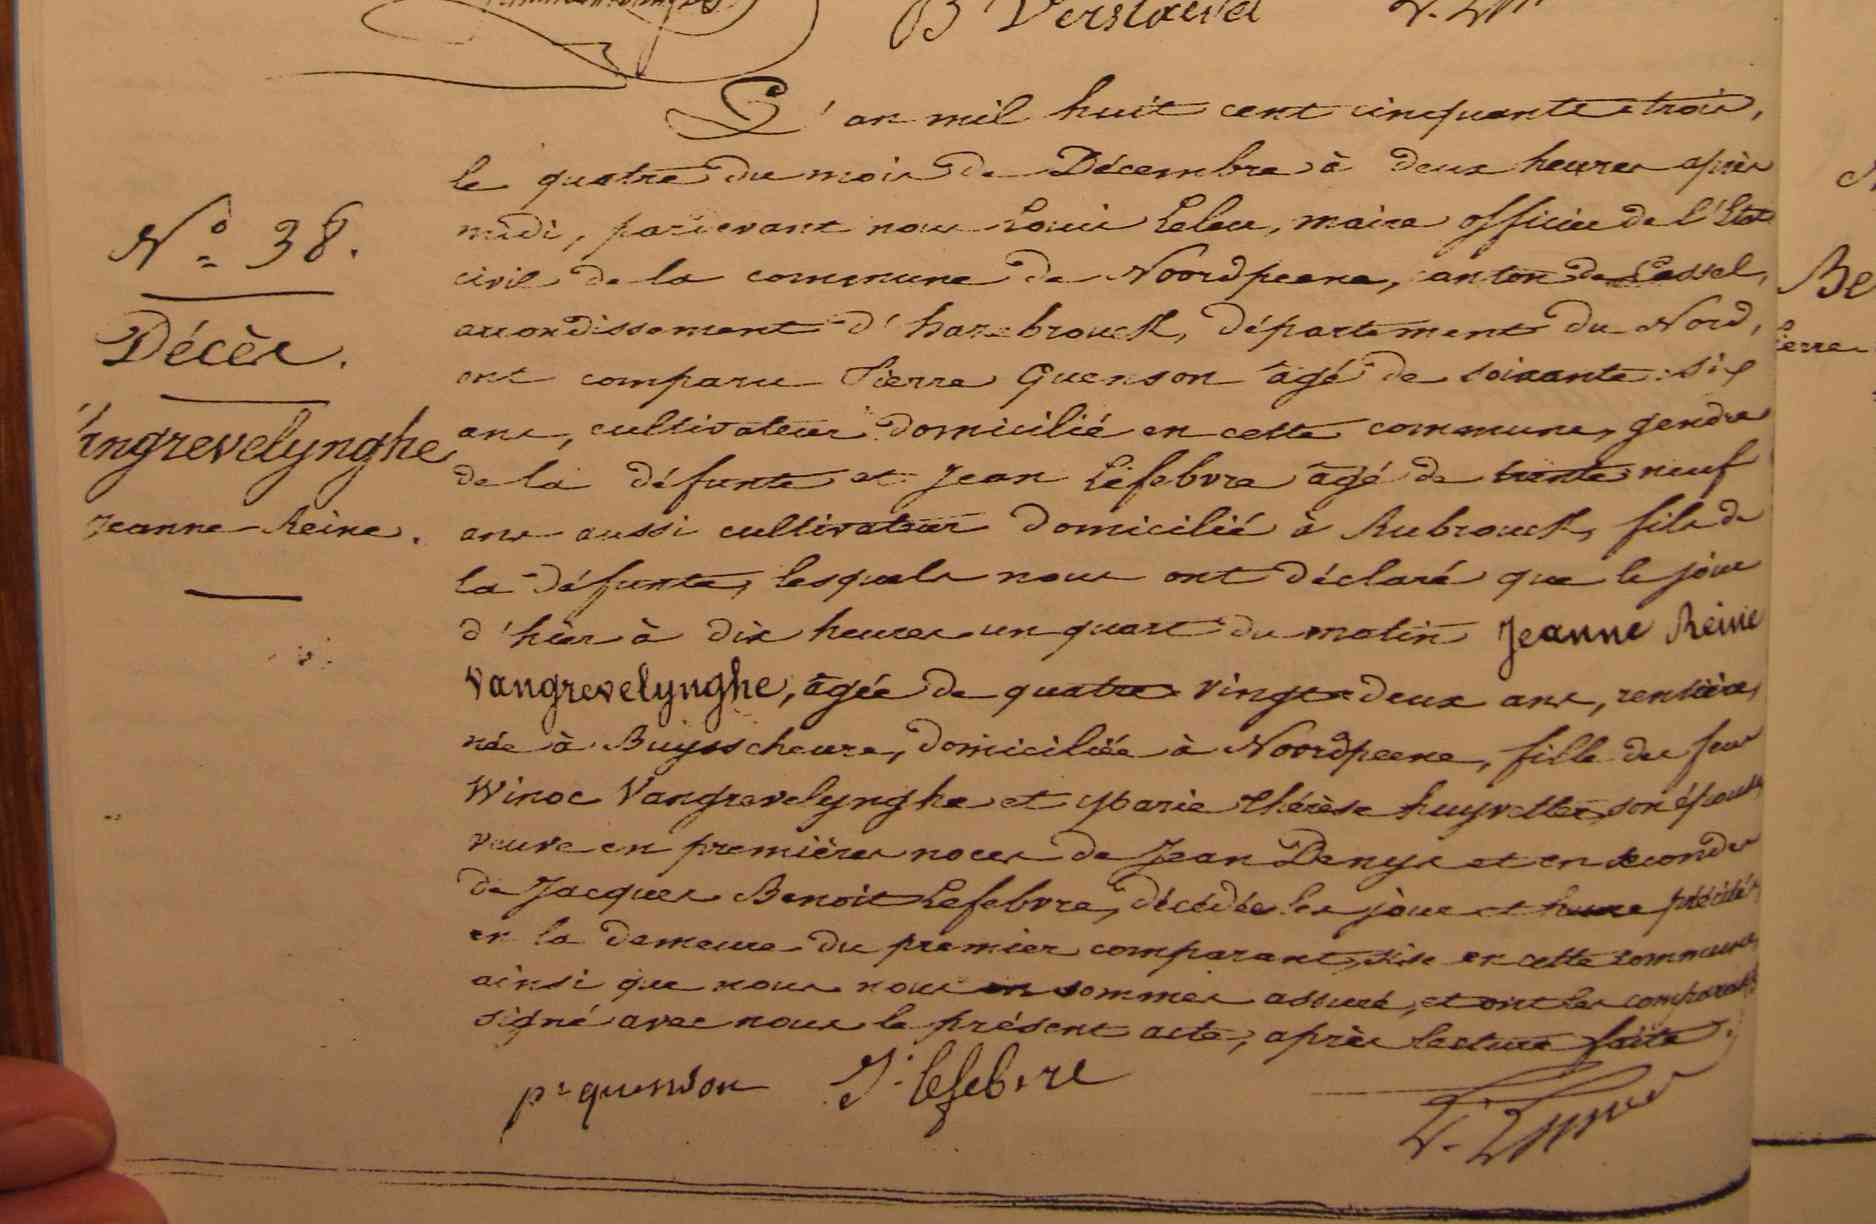 B Verstaevel
L'an mil huit cent cinquante trois,
le quatre du mois de Décembre à deux heures après
midi, pardevant nous Louis Leleu, maire officier de l'Etat
civil de la commune de Noordpeene, canton de Cassel,
arrondissement d'hazebrouck, département du Nord,
ont comparu Pierre Quenson agé de soixante-six
ans, cultivateur domicilié en cette commune, gendre
de la défunte et Jean Lefebvre agé de trente neuf
ans aussi cultivateur domicilié à Rubrouck, fils de
la défunte, lesquels nous ont déclaré que le jour
d'hier à dix heures un quart du matin Jeanne Reine
Vangrevelynghe, agée de quatre-vingt-deux ans, rentière,
née à Buysscheure, domiciliée à Noordpeene, fille de feu
Winoc Vangrevelynghe et Marie thérèse huyvetter son épouse,
veuve en premières noces de Jean Denys et en secondes
de Jacques Benoit Lefebvre, décédée les jour et heure précités
en la demeure du premier comparant, sise en cette commune,
ainsi que nous nous en sommes assuré, et ont les comparants
signé avec nous le présent acte, après lecture faite.
pr quenson J. lefebvre
N° 38.
Décès.
Vangrevelynghe
Jeanne Reine.
Be
ierre